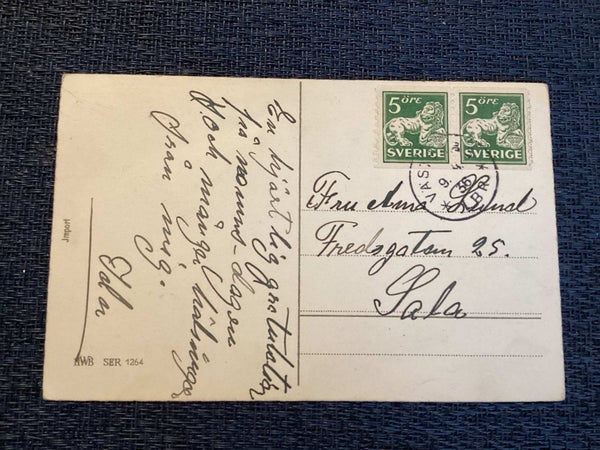 En hjärtlig gratulation
på namns-dagen
Och många hälsningar
från mig.
Ida
Import
AWB SER 1264
5 ÖRE
SVERIGE
5 ÖRE
SVERIGE
9
36
Fru Anna Lund
Fredsgatan 25.
Sala